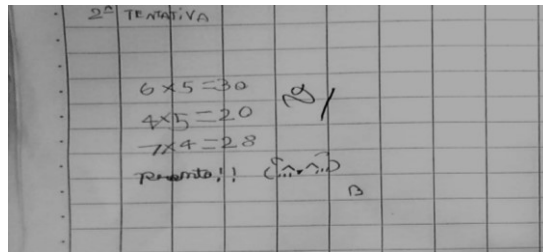 2ª TENTATIVA
6x5=30
4x5=20
7x4=28
Pronto!!
B